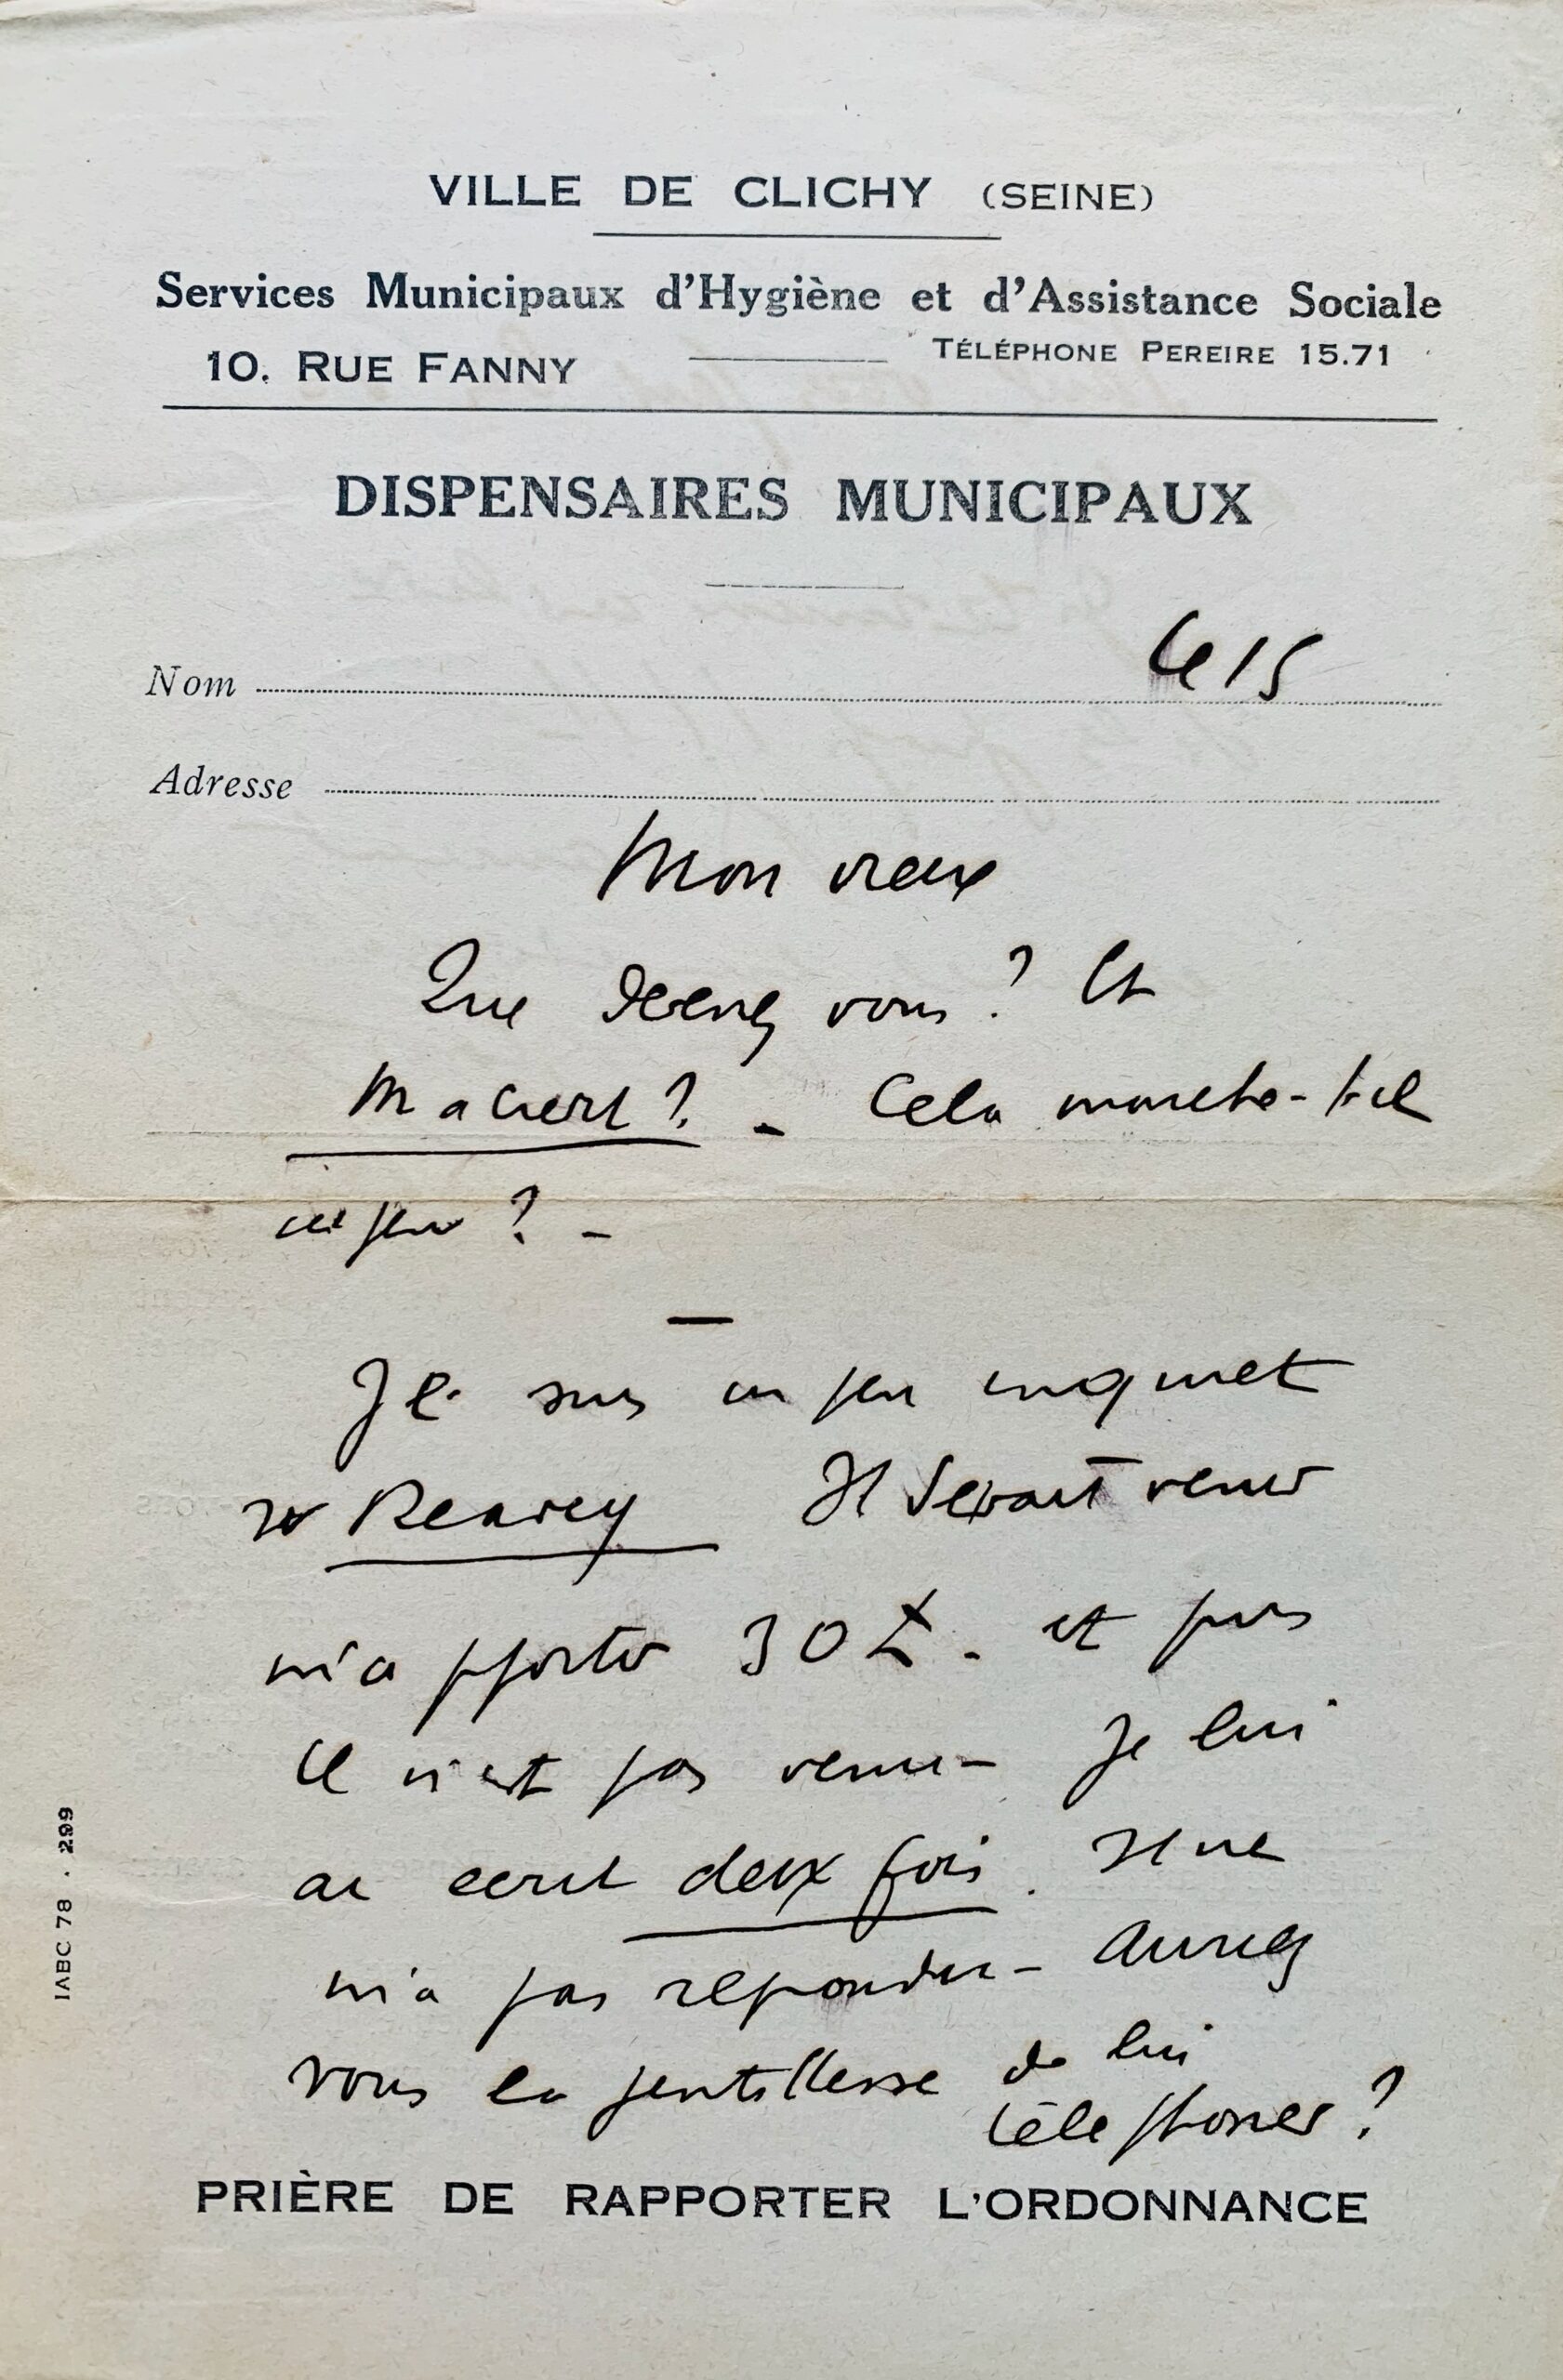 VILLE DE CLICHY (SEINE)
Services Municipaux d'Hygiène et d'Assistance Sociale
10. RUE FANNY TÉLÉPHONE PEREIRE 15.71
DISPENSAIRES MUNICIPAUX
Nom Le 15
Adresse
Mon vieux
Que devenez vous ? Et
? - Cela marche-t-il
un peu ? -
Je suis un peu inquiet
de Il devait venir
m'apporter 30 £. et puis
il n'est pas venu - Je lui
ai ecrit deux fois. Il ne
m'a pas repondu - Auriez
vous la gentillesse de lui
télephoner ?
PRIÈRE DE RAPPORTER L'ORDONNANCE
IABC 78 . 299